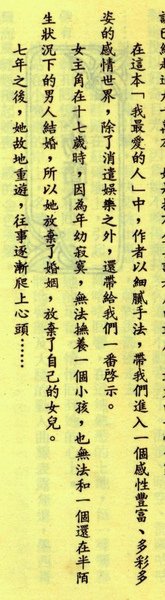 在這本「我最愛的人」中，作者以細膩手法，帶我們進入一個感性豐富、多彩多
姿的感情世界，除了消遣娛樂之外，還帶給我們一番啓示。
女主角在十七歲時，因為年幼寡寞，無法撫養一個小孩，也無法和一個還在半陌
生狀況下的男人結婚，所以她放棄了婚姻，放棄了自己的女兒。
七年之後，她故地重遊，往事逐漸爬上心頭……